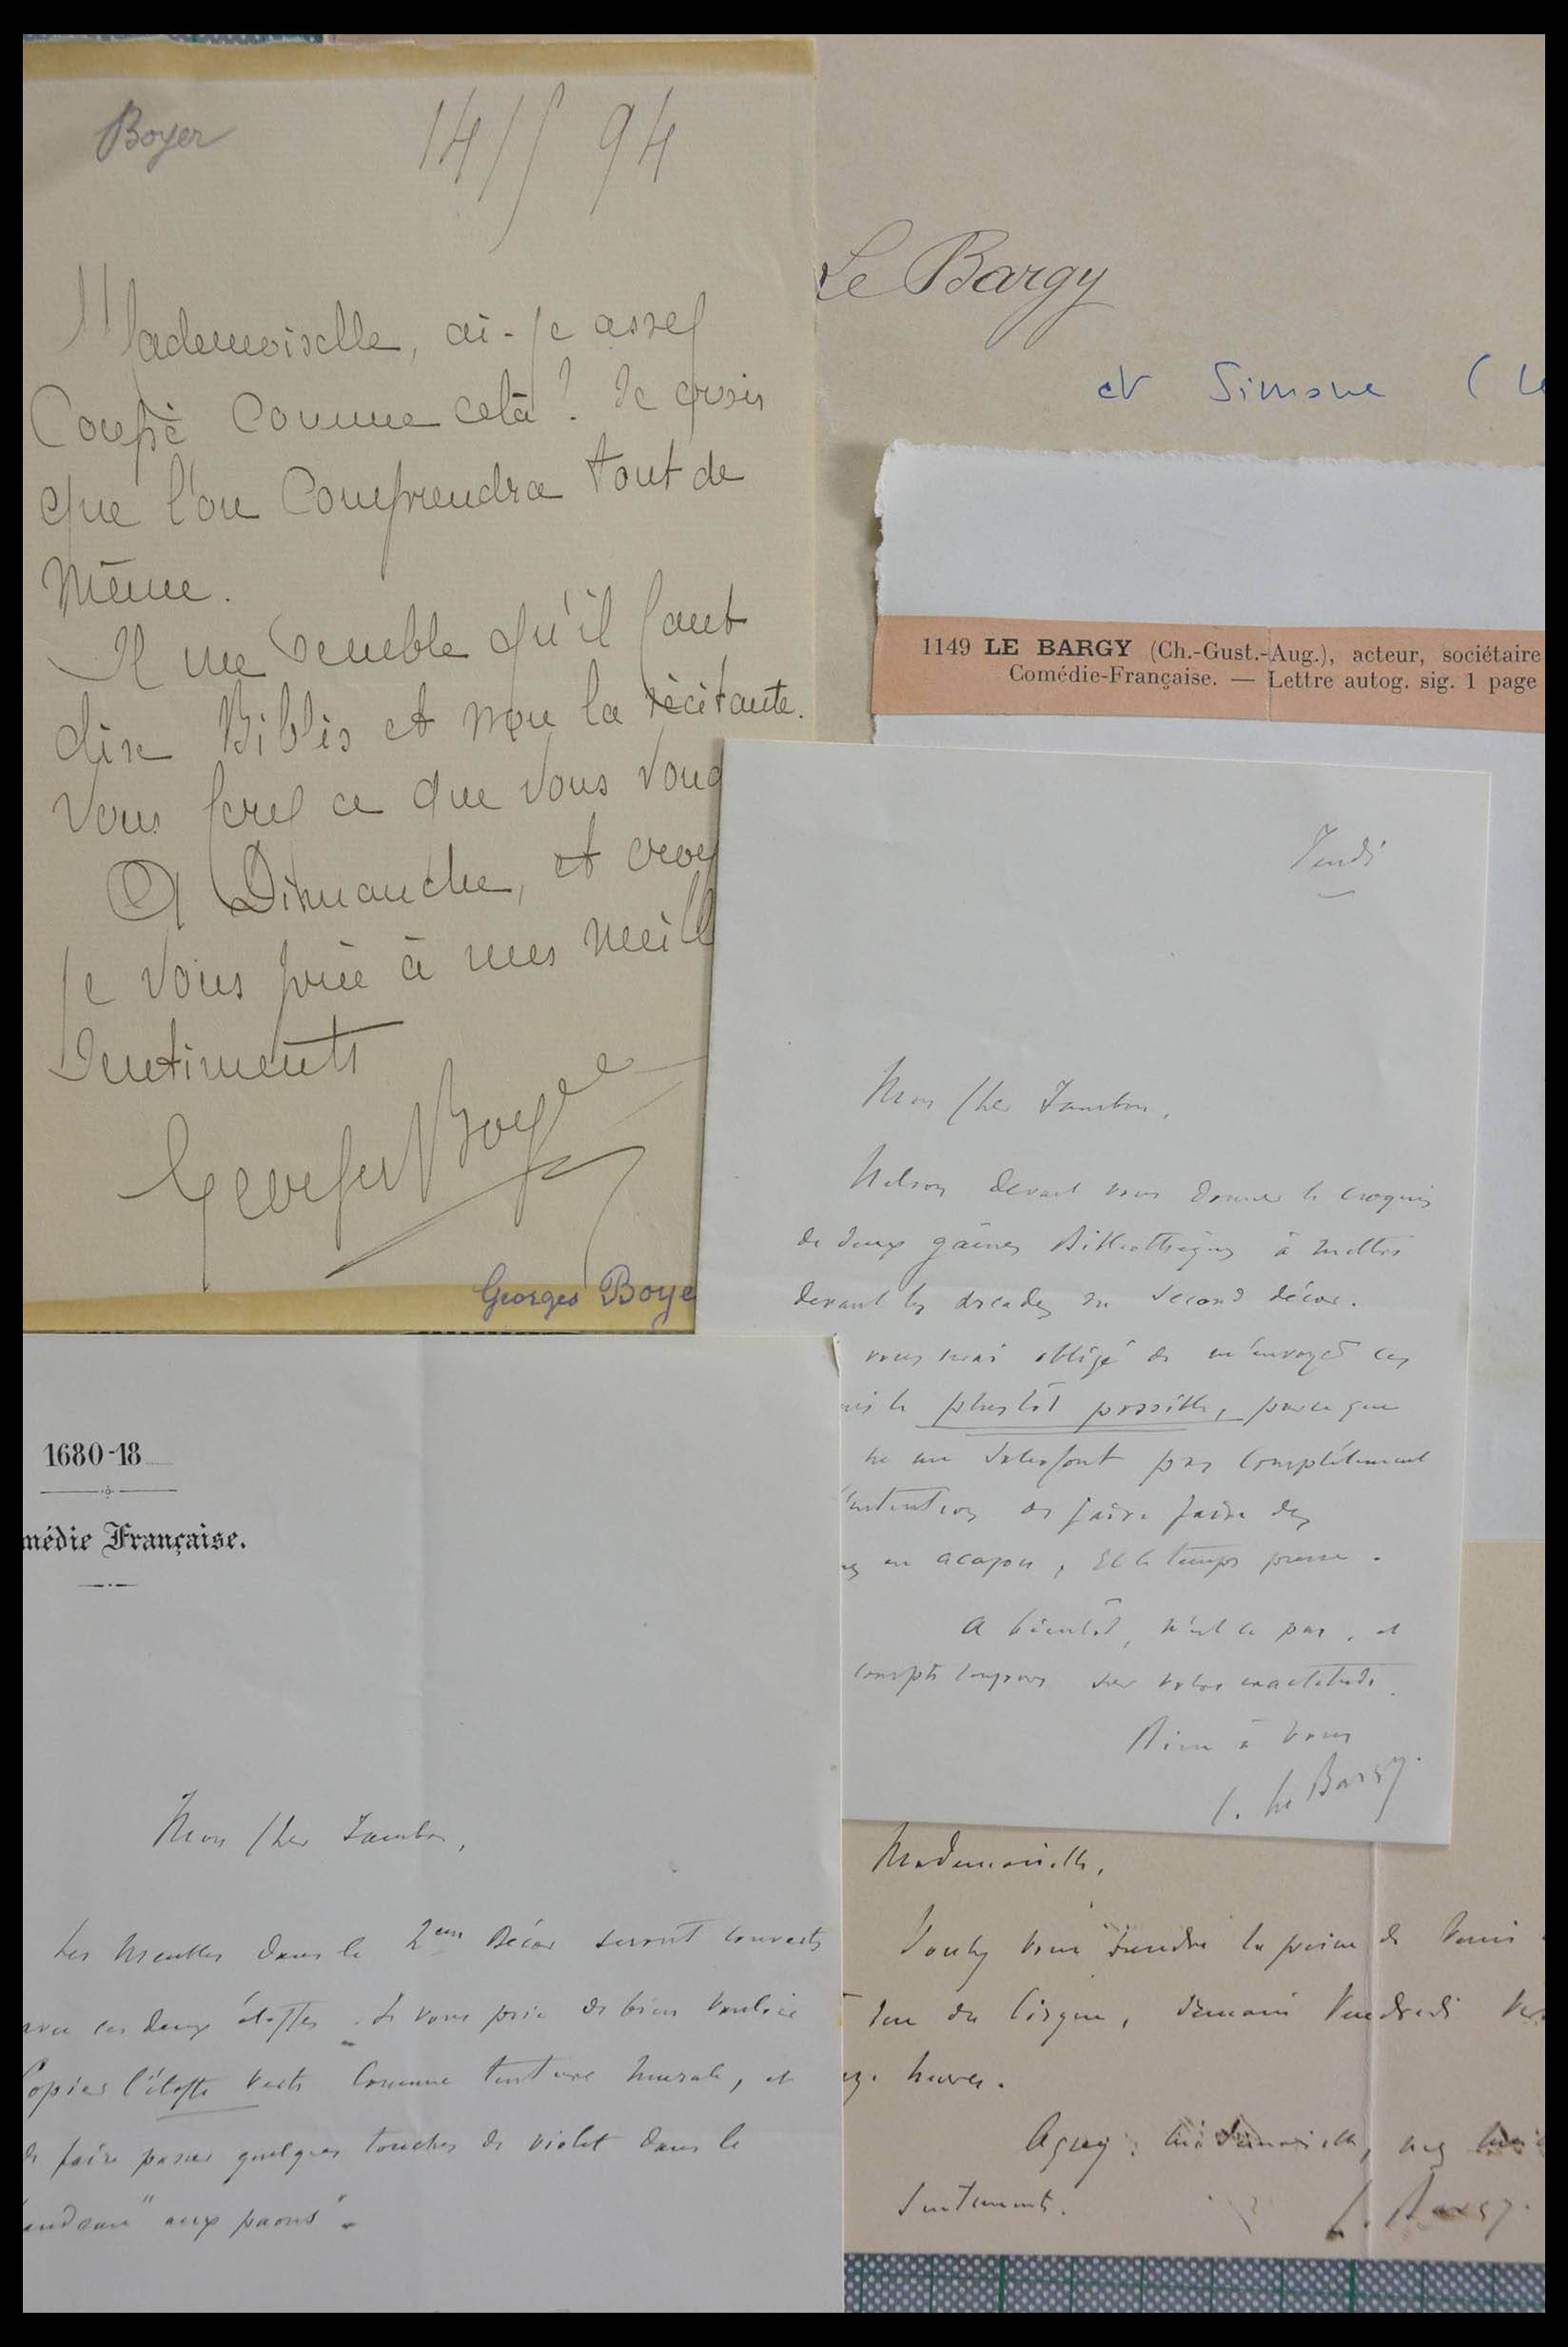 Boyer
14/5 94
Mademoiselle, ai-je assez
Coupé comme cela? Je crois
que l'on Comprendra tout de
même.
Il me semble qu'il faut
dire Biblis et non la récitante.
Vous ferez ce que vous voud
A Dimanche, et croy
je vous prie à mes meill
Sentiments
Georges Boyer
Georges Boye
Le Bargy
et Simone (Le
1149 LE BARGY (Ch.-Gust.-Aug.), acteur, sociétaire
Comédie-Française. — Lettre autog. sig. 1 page
Jeudi
Mon cher Jambon,
devait vous donner le croquis
de deux gaines Bibliothèques à mettre
devant les arcades du second décor.
vous serai obligé de m'envoyer ces
uis le plus tôt possible, parce que
ne me satisfont pas complètement
intention de faire faire des
es en acajou, et le temps presse.
A bientôt, n'est ce pas, et
compte toujours sur votre exactitude.
Bien à vous
C. Le Bargy.
1680-18
médie Française.
Mon cher Jambon,
Les meubles dans le 2eme Décor seront couverts
avec ces deux étoffes. Je vous prie de bien vouloir
Copier l'étoffe verte comme tenture murale, et
de faire passer quelques touches de violet dans le
"aux paons".
Mademoiselle,
Voulez vous prendre la peine de venir
rue du Cirque, demain Vendredi
heures.
Agréez, Mademoiselle, mes
Sentiments.
L. Bargy.